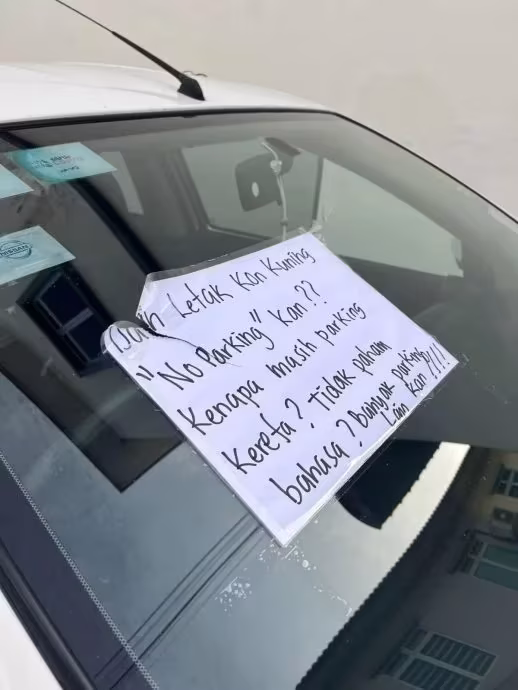 Dah Letak Kon Kuning
"No Parking" kan??
Kenapa masih parking
kereta? Tidak paham
bahasa? Banyak parking
Lain kan?!!!
NISSAN